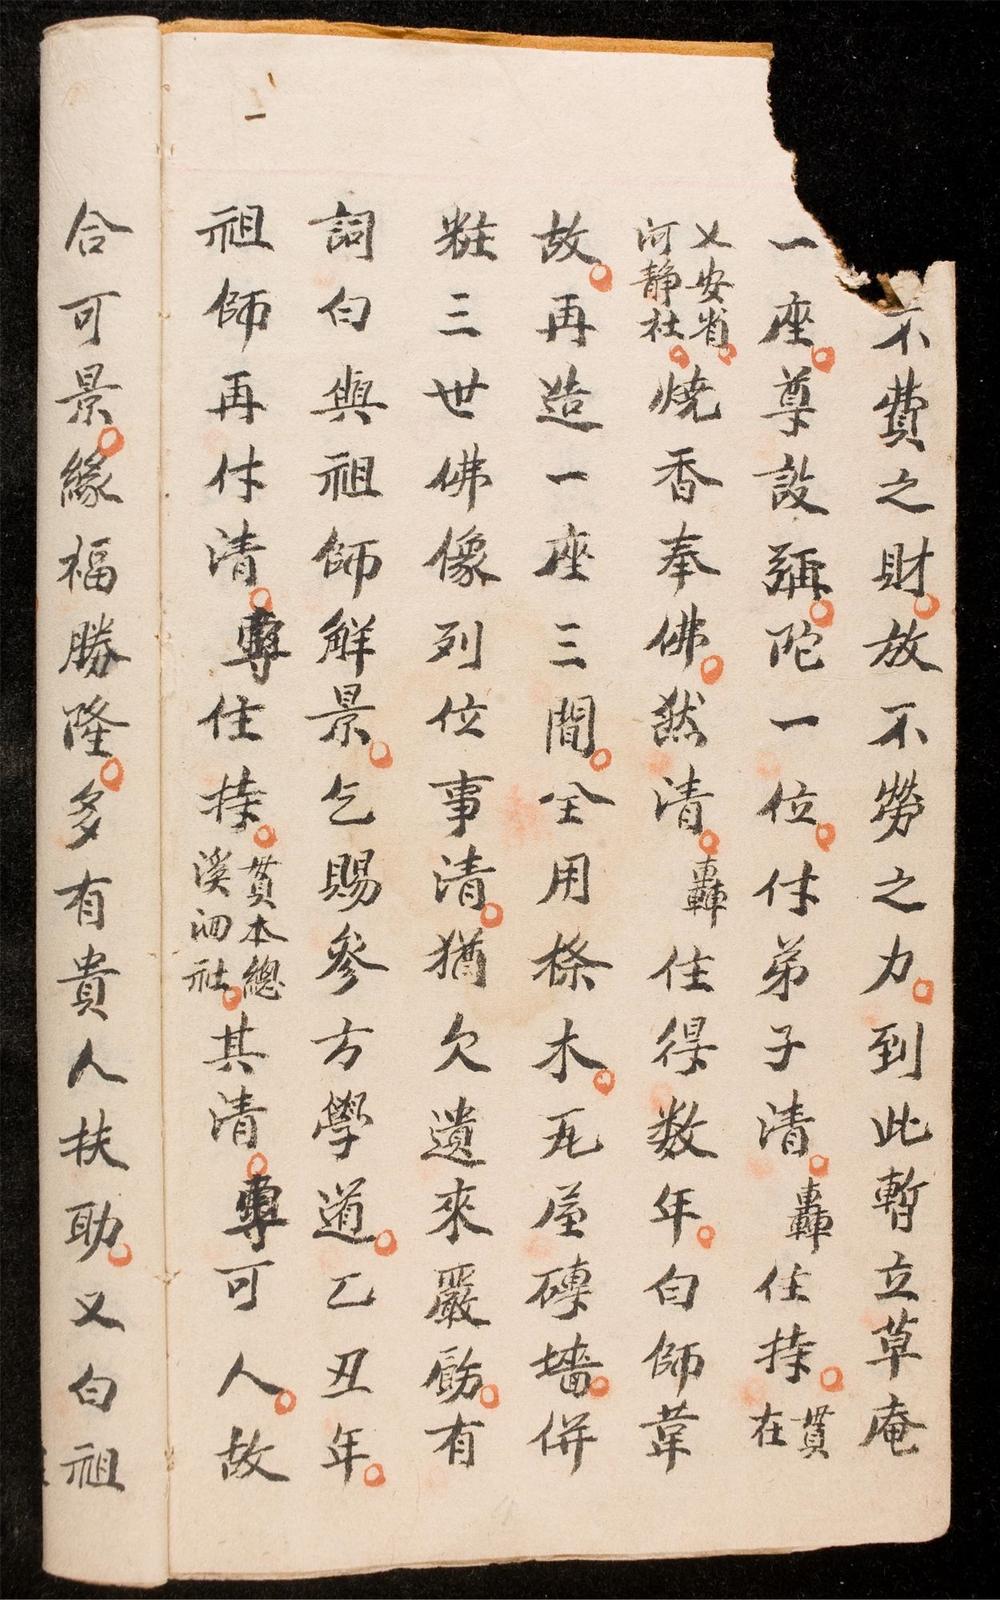 不費之財放不勞之力到此暫立草庵
一座尊設彌陀一位付弟子清轟住持貫在
乂安省河静社燒香奉佛然清轟住得数年白師葦
故再造一座三間全用橾木瓦屋磚墻併
粧三世佛像列位事清猶欠遺來嚴餝有
詞白與祖師觧景乞賜參方學道乙丑年
祖師再付清專住持貫本總溪泗社其清專可人故
合可景緣福勝隆多有貴人扶助又白祖